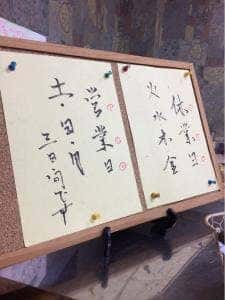 休業日
火水木金
営業日
土・日・月
三日間です